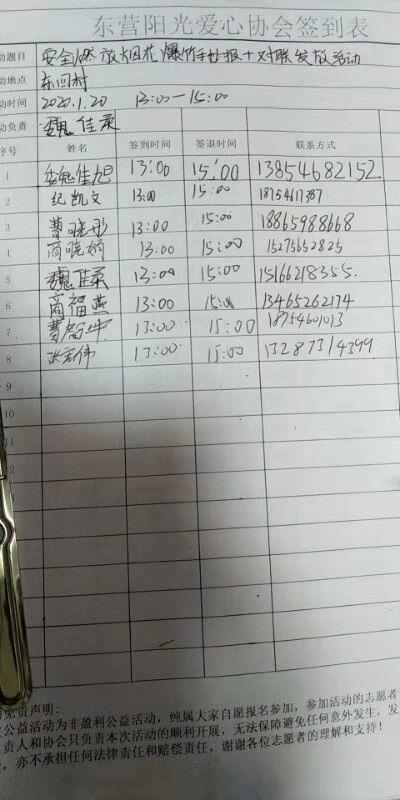 东营阳光爱心协会签到表
动题目 安全燃放烟花爆竹手抄报+对联发放活动
动地点 东回村
动时间 2020.1.20 13:00—15:00
动负责 魏佳录
序号 姓名 签到时间 签退时间 联系方式
1 魏佳旭 13:00 15:00 13854682152
2 纪凯文 13:00 15:00
3 曹晓彤 13:00 15:00 18865988668
4 商晓娇 13:00 15:00 15275652825
5 魏佳录 13:00 15:00 15166218355
6 高福燕 13:00 15:00 13465262174
7 13:00 15:00 18754601013
8 13:00 15:00 13287314399
9
10
11
免责声明:
公益活动为非盈利公益活动，纯属大家自愿报名参加，参加活动的志愿者
责人和协会只负责本次活动的顺利开展，无法保障避免任何意外发生，发
，亦不承担任何法律责任和赔偿责任，谢谢各位志愿者的理解和支持！